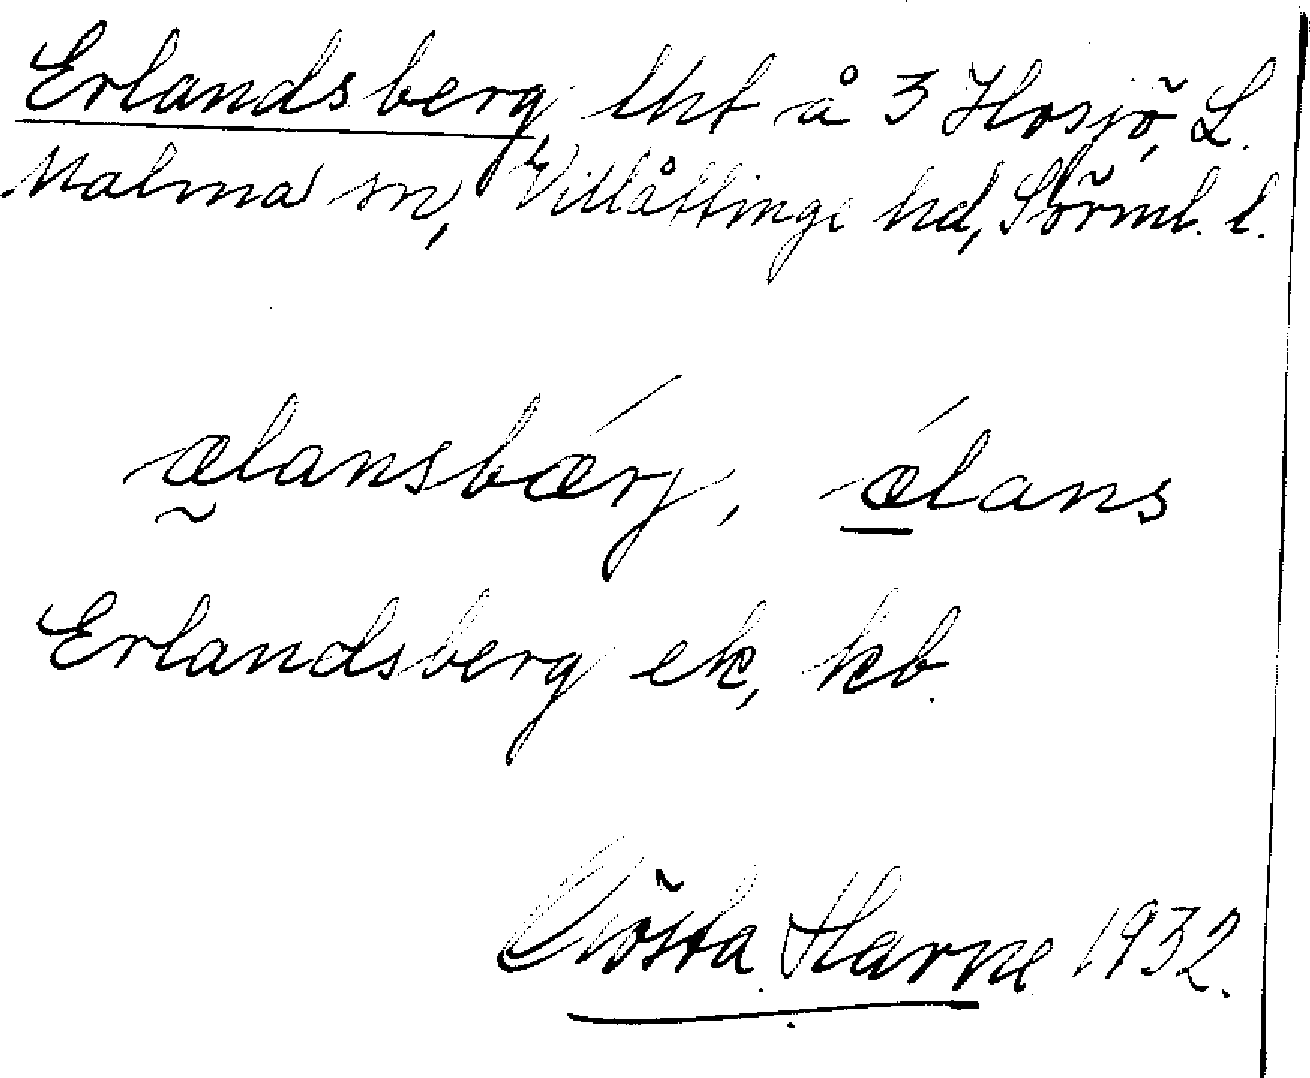 Erlandsberg, lht å 3 Hosjö, L.
Malma sn, Villåttinge hd, Sörml. l.
ælansbǽrj, ǽlans
Erlandsberg ek, kb.
Gösta Harne 1932.